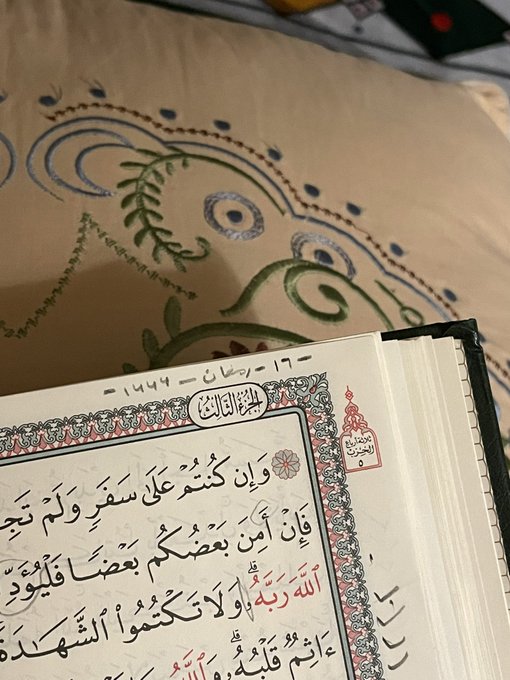 -١٦- رمضان - ١٤٤٤ -
الجزء الثالث
ثلاثة أرباع
الحزب
٥
وَإِن كُنتُمْ عَلَىٰ سَفَرٍ وَلَمْ تَجِ
فَإِنْ أَمِنَ بَعْضُكُم بَعْضًا فَلْيُؤَدِّ
ٱللَّهَ رَبَّهُۥۗ وَلَا تَكْتُمُوا۟ ٱلشَّهَـٰدَةَ
ءَاثِمٌ قَلْبُهُۥۗ وَٱللَّهُ